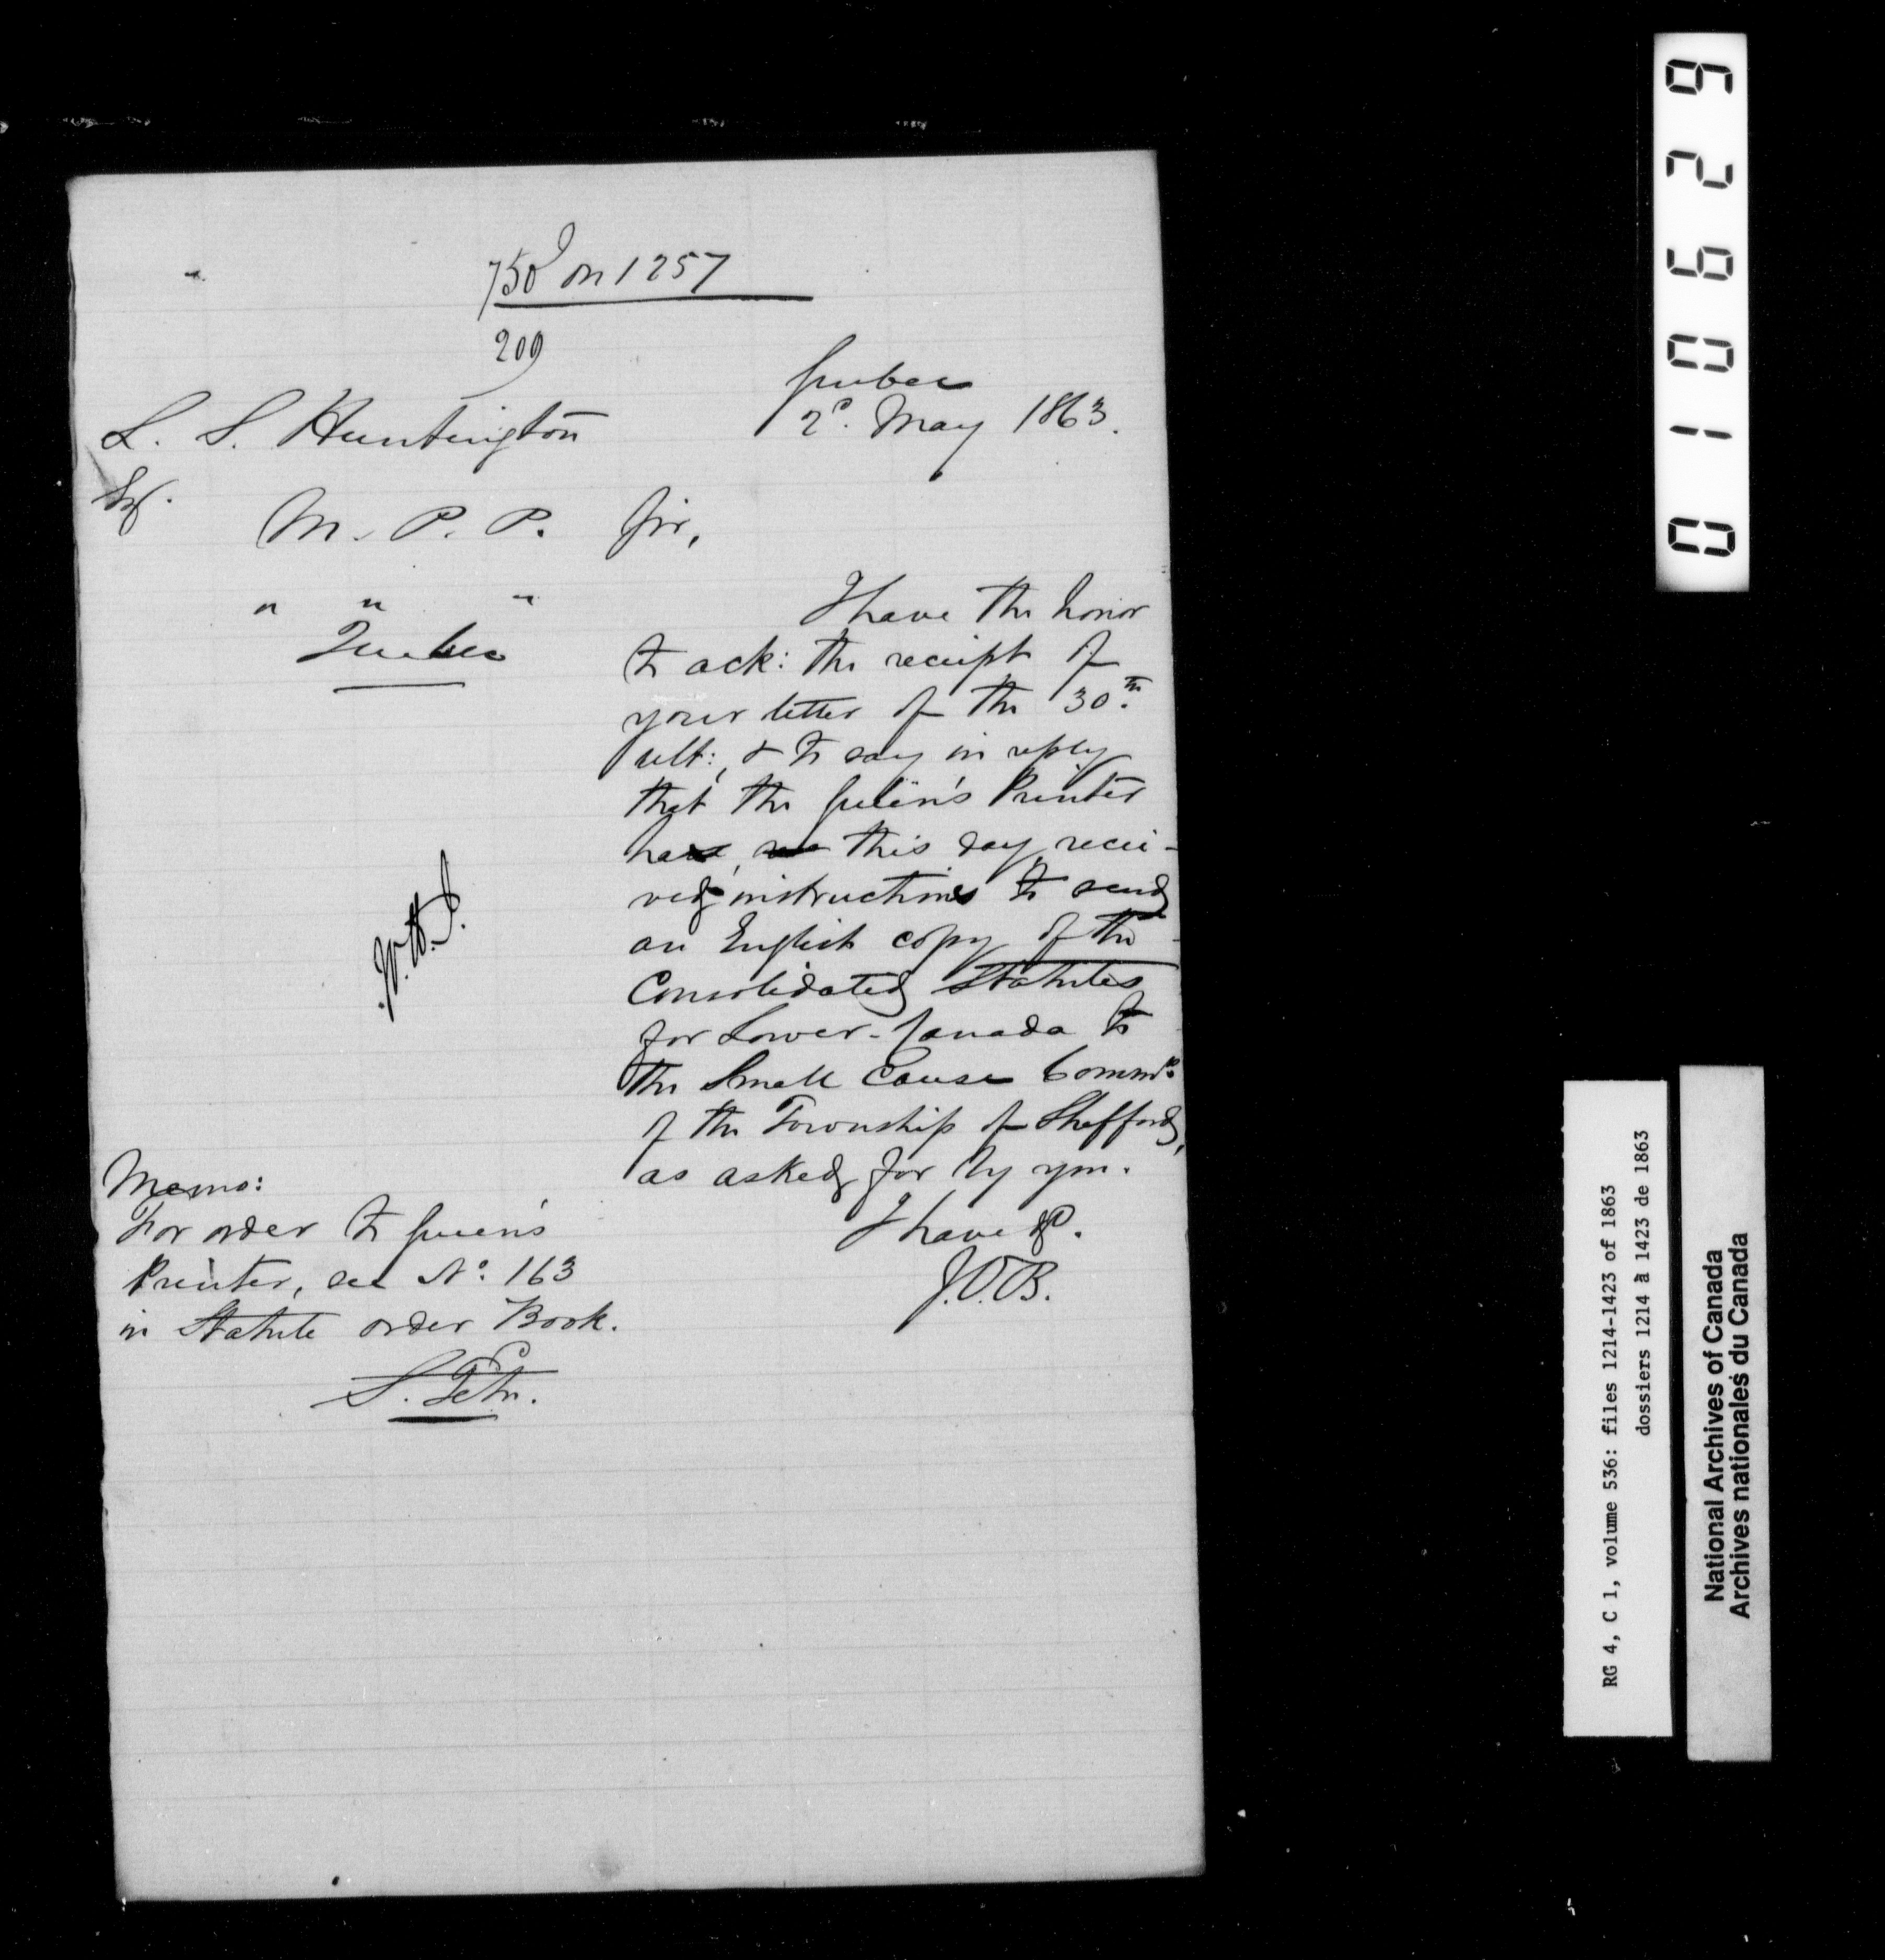 750 on 1257
209
Quebec
2d. May 1863.
L. S. Huntington
Esq.
M. P. P.
" " "
Quebec
Sir,
I have the honor
to ack: the receipt of
your letter of the 30th.
ult:, & to say in reply
that the Queen's Printer
has, this day, recei-
ved instructions to send
an English copy of the
Consolidated Statutes
for Lower-Canada to
the Small Cause Commrs.
of the Township of Shefford,
as asked for by you.
I have &c.
J.O.B.
Memo:
For order to Queen's
Printer, see No. 163
in Statute order Book.
010629
RG 4, C 1, volume 536: files 1214-1423 of 1863
dossiers 1214 à 1423 de 1863
National Archives of Canada
Archives nationales du Canada